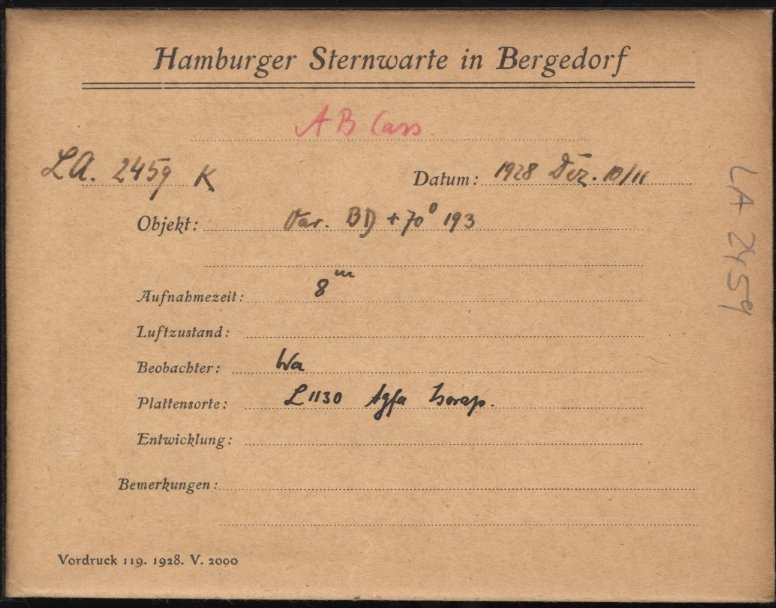 Hamburger Sternwarte in Bergedorf
AB Cass
LA. 2459 K
Datum: 1928 Dez. 10/11
Objekt: Var. BD +70° 193
Aufnahmezeit: 8m
Luftzustand:
Beobachter: Wa
Plattensorte: L1130 Agfa Isorap.
Entwicklung:
Bemerkungen:
Vordruck 119. 1928. V. 2000
LA 2459